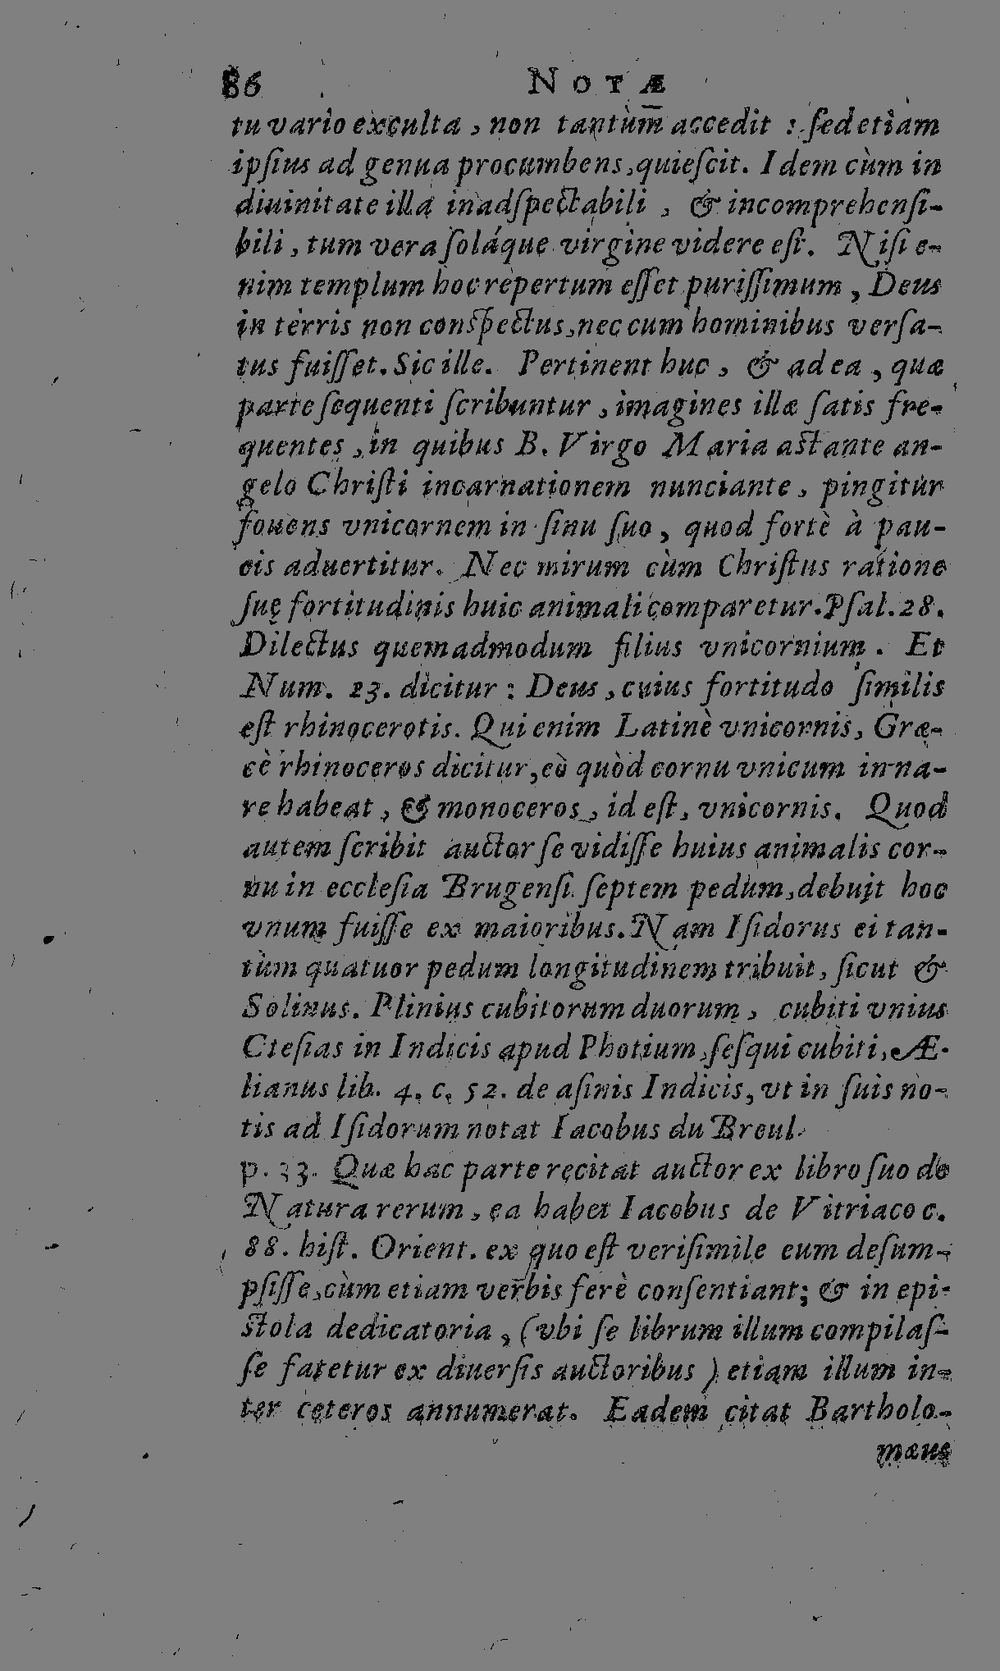 86 NOTÆ
tu vario exculta, non tantùm accedit : ſed etiam
ipſius ad genua procumbens, quieſcit. Idem cùm in
diuinitate illa inadſpectabili, & incomprehenſi-
bili, tum vera ſoláque virgine videre eſt. Niſi e-
nim templum hoc repertum eſſet puriſſimum, Deus
in terris non conſpectus, nec cum hominibus verſa-
tus fuiſſet. Sic ille. Pertinent huc, & ad ea, quæ
parte ſequenti ſcribuntur, imagines illæ ſatis fre-
quentes, in quibus B. Virgo Maria aſtante an-
gelo Chriſti incarnationem nunciante, pingitur
fouens vnicornem in ſinu ſuo, quod fortè à pau-
cis aduertitur. Nec mirum cùm Chriſtus ratione
ſuę fortitudinis huic animali comparetur. Pſal. 28.
Dilectus quemadmodum filius vnicornium. Et
Num. 23. dicitur : Deus, cuius fortitudo ſimilis
eſt rhinocerotis. Qui enim Latinè vnicornis, Græ-
cè rhinoceros dicitur, eò quòd cornu vnicum in na-
re habeat, & monoceros, id eſt, vnicornis. Quod
autem ſcribit auctor ſe vidiſſe huius animalis cor-
nu in eccleſia Brugenſi ſeptem pedum, debuit hoc
vnum fuiſſe ex maioribus. Nam Iſidorus ei tan-
tùm quatuor pedum longitudinem tribuit, ſicut &
Solinus. Plinius cubitorum duorum, cubiti vnius
Cteſias in Indicis apud Photium, ſeſqui cubiti, Æ-
lianus lib. 4. c. 52. de aſinis Indicis, vt in ſuis no-
tis ad Iſidorum notat Iacobus du Breul.
p. 33. Quæ hac parte recitat auctor ex libro ſuo de
Natura rerum, ea habet Iacobus de Vitriaco c.
88. hiſt. Orient. ex quo eſt veriſimile eum deſum-
pſiſſe, cùm etiam verbis ferè conſentiant; & in epi-
ſtola dedicatoria, (vbi ſe librum illum compilaſ-
ſe fatetur ex diuerſis auctoribus) etiam illum in-
ter ceteros annumerat. Eadem citat Bartholo-
mæus